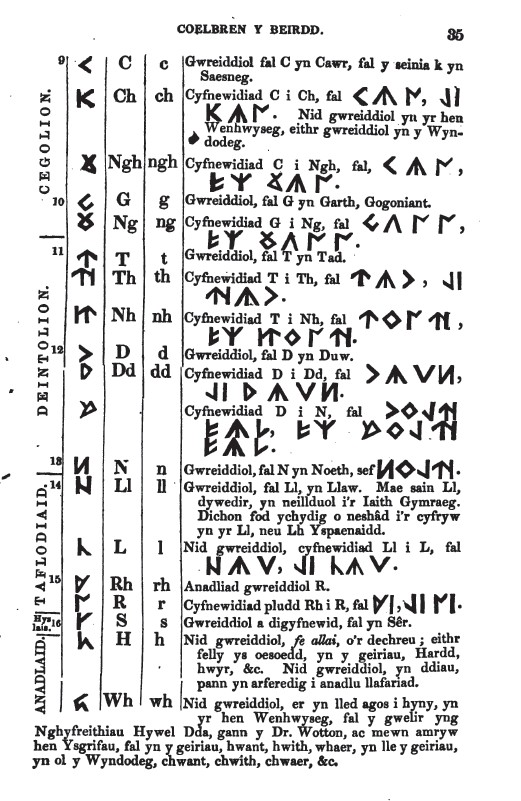 COELBREN Y BEIRDD. 35
CEGOLION.
9 C c Gwreiddiol fal C yn Cawr, fal y seinia k yn
Saesneg.
Ch ch Cyfnewidiad C i Ch, fal
Nid gwreiddiol yn yr hen
Wenhwyseg, eithr gwreiddiol yn y Wyn-
dodeg.
Ngh ngh Cyfnewidiad C i Ngh, fal,
10 G g Gwreiddiol, fal G yn Garth, Gogoniant.
Ng ng Cyfnewidiad G i Ng, fal
DEINTOLION.
11 T t Gwreiddiol, fal T yn Tad.
Th th Cyfnewidiad T i Th, fal
Nh nh Cyfnewidiad T i Nh, fal
12 D d Gwreiddiol, fal D yn Duw.
Dd dd Cyfnewidiad D i Dd, fal
Cyfnewidiad D i N, fal
13 N n Gwreiddiol, fal N yn Noeth, sef
TAFLODIAID.
14 Ll ll Gwreiddiol, fal Ll, yn Llaw. Mae sain Ll,
dywedir, yn neillduol i'r Iaith Gymraeg.
Dichon fod ychydig o neshâd i'r cyfryw
yn yr Ll, neu Lh Yspaenaidd.
L l Nid gwreiddiol, cyfnewidiad Ll i L, fal
15 Rh rh Anadliad gwreiddiol R.
R r Cyfnewidiad pludd Rh i R, fal
16 S s Gwreiddiol a digyfnewid, fal yn Sêr.
ANADLAID.
H h Nid gwreiddiol, fe allai, o'r dechreu; eithr
felly ys oesoedd, yn y geiriau, Hardd,
hwyr, &c. Nid gwreiddiol, yn ddiau,
pann yn arferedig i anadlu llafariad.
Wh wh Nid gwreiddiol, er yn lled agos i hyny, yn
yr hen Wenhwyseg, fal y gwelir yng
Nghyfreithiau Hywel Dda, gann y Dr. Wotton, ac mewn amryw
hen Ysgrifau, fal yn y geiriau, hwant, hwith, whaer, yn lle y geiriau,
yn ol y Wyndodeg, chwant, chwith, chwaer, &c.